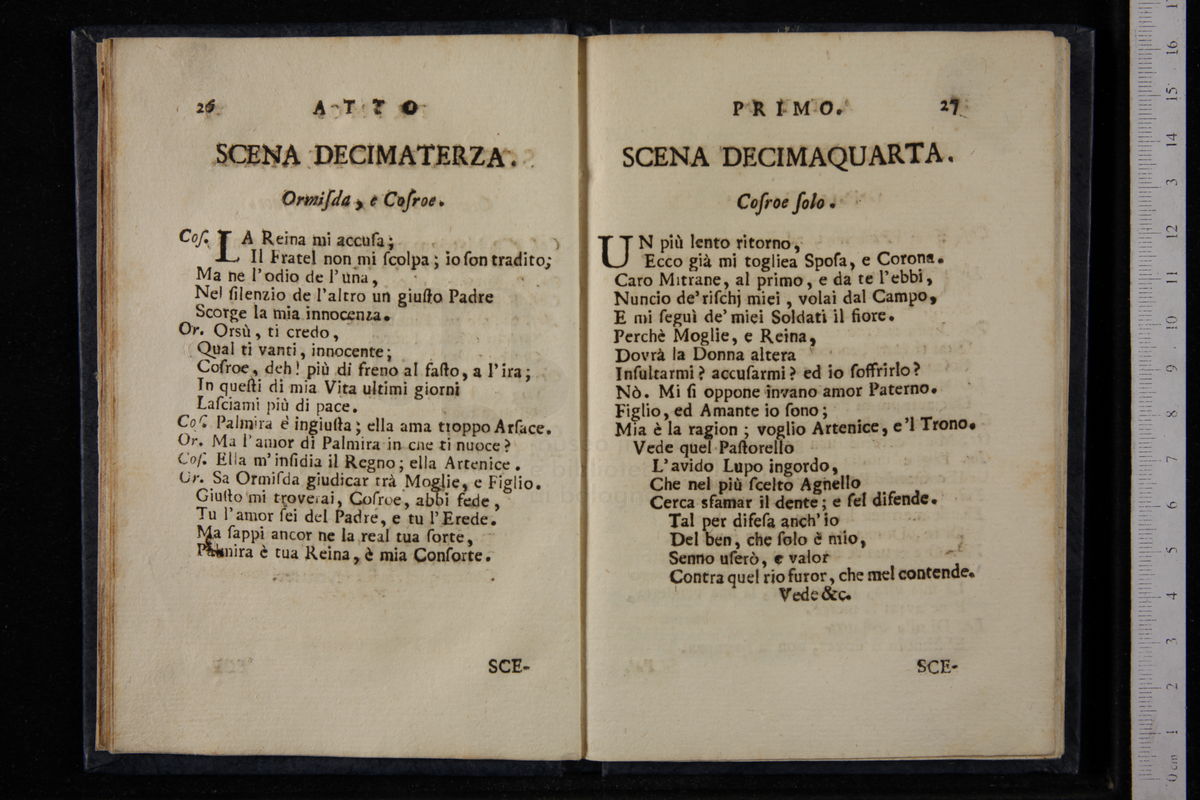 26 ATTO
SCENA DECIMATERZA.
Ormiſda, e Coſroe.
Coſ. LA Reina mi accuſa;
Il Fratel non mi ſcolpa; io ſon tradito;
Ma ne l'odio de l'una,
Nel ſilenzio de l'altro un giuſto Padre
Scorge la mia innocenza.
Or. Orsù, ti credo,
Qual ti vanti, innocente;
Coſroe, deh! più di freno al faſto, a l'ira;
In queſti di mia Vita ultimi giorni
Laſciami più di pace.
Coſ. Palmira è ingiuſta; ella ama troppo Arſace.
Or. Ma l'amor di Palmira in che ti nuoce?
Coſ. Ella m'inſidia il Regno; ella Artenice.
Or. Sa Ormiſda giudicar trà Moglie, e Figlio.
Giuſto mi troverai, Coſroe, abbi fede,
Tu l'amor ſei del Padre, e tu l'Erede.
Ma ſappi ancor ne la real tua ſorte,
Palmira è tua Reina, è mia Conſorte.
SCE-
PRIMO. 27
SCENA DECIMAQUARTA.
Coſroe ſolo.
UN più lento ritorno,
Ecco già mi togliea Spoſa, e Corona.
Caro Mitrane, al primo, e da te l'ebbi,
Nuncio de'riſchj miei, volai dal Campo,
E mi ſeguì de'miei Soldati il fiore.
Perchè Moglie, e Reina,
Dovrà la Donna altera
Inſultarmi? accuſarmi? ed io ſoffrirlo?
Nò. Mi ſi oppone invano amor Paterno.
Figlio, ed Amante io ſono;
Mia è la ragion; voglio Artenice, e'l Trono.
Vede quel Paſtorello
L'avido Lupo ingordo,
Che nel più ſcelto Agnello
Cerca sfamar il dente; e ſel difende.
Tal per difeſa anch'io
Del ben, che ſolo è mio,
Senno uſerò, e valor
Contra quel rio furor, che mel contende.
Vede &c.
SCE-
0 cm 1 2 3 4 5 6 7 8 9 10 11 12 13 14 15 16